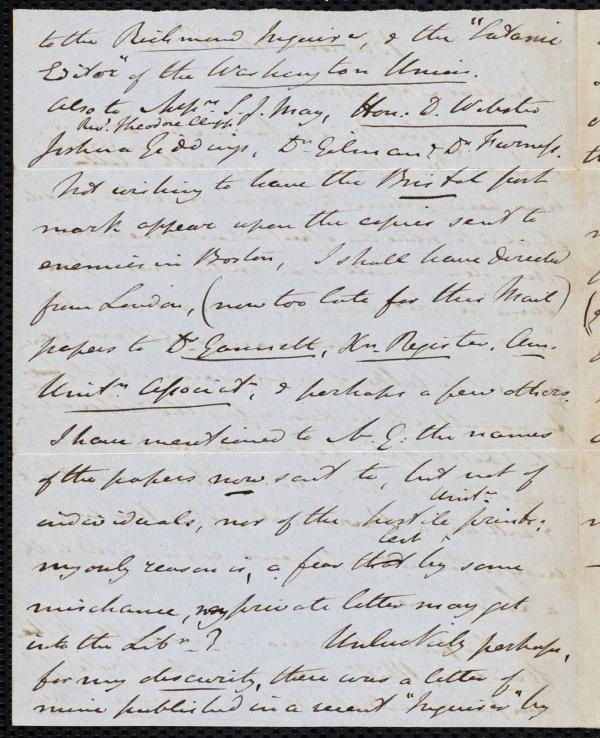 to the Richmond Inquirer, & the "Satanic
Editor" of the Washington Union.
Also to Messrs S. J. May, Hon: D. Webster
Revd. Theodore Clapp,
Joshua Giddings, Dr. Gilman & Dr. Furness.
Not wishing to have the Bristol post
mark appear upon the copies sent to
enemies in Boston, I shall have directed
from London, (now too late for this Mail)
papers to Dr. Gannett, Xn. Register, Am.
Unitn. Associatn, & perhaps a few others.
I have mentioned to Mr G: the names
of the papers now sent to, but not of
Unitn
individuals, nor of the hostile prints:
lest
my only reason is, a fear that by some
mischance, my private letter may get
into the Libr.? Unluckily perhaps,
for my obscurity, there was a letter of
mine published in a recent "Inquirer" by